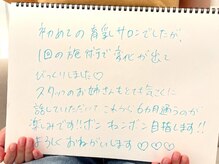 初めての育乳サロンでしたが、
1回の施術で変化が出て
びっくりしました♡
スタッフのお姉さんもとても気さくに
話していただいて これから6カ月通うのが
楽しみです!!ボン キュッボン目指します!!
よろしくおねがいします♡♡♡